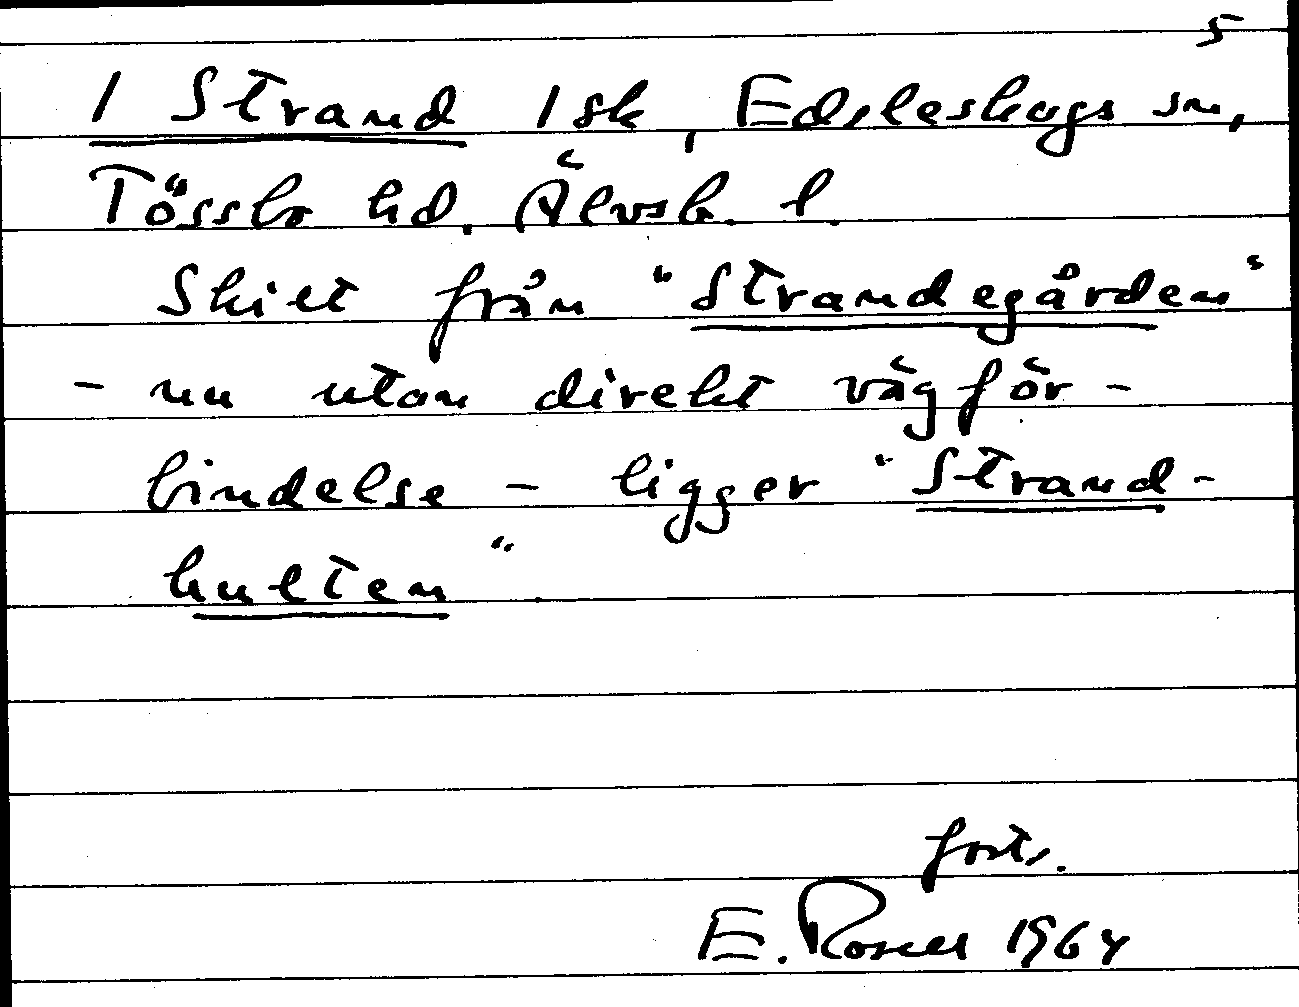 5
1 Strand 1 sk, Edsleskogs sn,
Tössbo hd, Älvsb. l.
Skilt från "Strandegården"
- nu utan direkt vägför-
bindelse - ligger "Strand-
hulten".
forts.
E. Rosell 1964